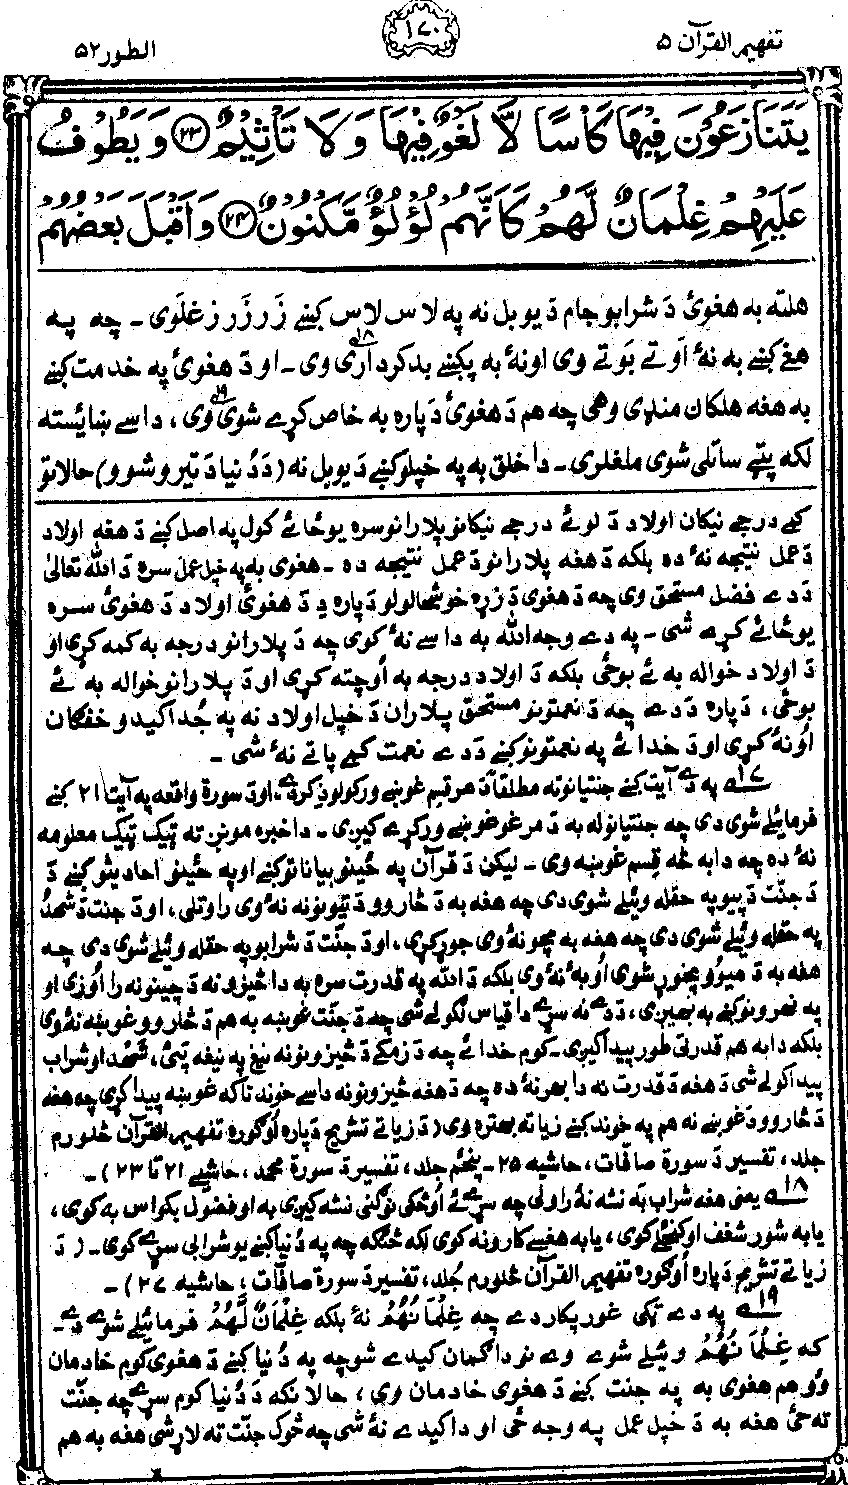 تفهیم القرآن ۵
۱۷۰
الطور ۵۲
يَتَنَازَعُوْنَ فِيْهَا كَاْسًا لَّا لَغْوٌ فِيْهَا وَلَا تَاْثِيْمٌ ﴿۲۳﴾ وَيَطُوْفُ
عَلَيْهِمْ غِلْمَانٌ لَّهُمْ كَاَنَّهُمْ لُؤْلُؤٌ مَّكْنُوْنٌ ﴿۲۴﴾ وَاَقْبَلَ بَعْضُهُمْ
هلته به هغوئ د شرابو جام د يو بل نه په لاس لاس کښے زَر زَر زغلَوى ـ چه په
هغے کښے به نۀ اَوتے بَوتے وى اونۀ به پکښے بدکردارى ۱۸ وى ـ او د هغوئ په خدمت کښے
به هغه هلکان منډى وهى چه هم د هغوئ دَپاره به خاص کړے شوى ۱۹ وى، داسے ښائسته
لکه پټے ساتلى شوى ملغلرى ـ دا خلق به په خپلو کښے د يو بل نه (دَ دُنيا دَ تيرو شوو) حالاتو
کمے درجے نيکان اولاد دَ لوئے درجے نيکانو پلارانو سره يو ځائے کول په اصل کښے دَ هغه اولاد
دَ عمل نتيجه نۀ ده بلکه دَ هغه پلارانو دَ عمل نتيجه ده ـ هغوى به په خپل عمل سره دَ الله تعالىٰ
دَ دے فضل مستحق وى چه دَ هغوى دَ زړۀ خوشحالولو دَپاره دِ دَ هغوئ اولاد دَ هغوئ سره
يوځائے کړے شى ـ په دے وجه الله به داسے نۀ کوى چه دَ پلارانو درجه به کمه کړى او
دَ اولاد خواله به ئے بوځى بلکه دَ اولاد درجه به اُوچته کړى او دَ پلارانو خواله به ئے
بوځى، دَپاره دَ دے چه دَ نعمتونو مستحق پلاران دَ خپل اولاد نه په جُدا کيدو خفګان
اونۀ کړى او دَ خدائے په نعمتونو کښے دَ دے نعمت کمے پاتے نۀ شى ـ
۱۷ په دے آيت کښے جنتيانو ته مطلقاً دَ هر قسم غوښے ورکولو ذکر دے، او دَ سورة واقعه په آيت ۲۱ کښے
فرمائيلے شوى دى چه جنتيانو له به دَ مرغو غوښے ورکړے کيږى ـ دا خبره مونږ ته ټيک ټيک معلومه
نۀ ده چه دا به څه قسم غوښه وى ـ ليکن دَ قرآن په ځينو بياناتو کښے او په ځينو احاديثو کښے دَ
دَ جنّت دَ پيو په حقله وئيلے شوى دى چه هغه به دَ څاروو دَ تيونو نه نۀ وى راوتلى، او دَ جنت دَ شهدُ
په حقله وئيلے شوى دى چه هغه به مچو نۀ وى جوړ کړى، او دَ جنّت دَ شرابو په حقله وئيلے شوى دى چه
هغه به دَ ميوو نچوړ شوى اُوبۀ نۀ وى بلکه دَ الله په قدرت سره به دا څيزونه دَ چينو نه را اُوزى او
په نهرونو کښے به بهيږى، دَ دے نه سړے دا قياس لګولے شى چه دَ جنّت غوښه به هم دَ څاروو غوښه نۀ وى
بلکه دا به هم قدرتى طور پيدا کيږى ـ کوم خدائے چه دَ زمکے دَ څيزونو نه نيغ په نيغه پئى، شهدُ او شراب
پيدا کولے شى دَ هغه دَ قدرت نه دا بهر نۀ ده چه دَ هغه څيزونو نه داسے خوندناکه غوښه پيدا کړى چه هغه
دَ څاروو دَ غوښے نه هم په خوند کښے زياته بهتره وى (دَ زياتے تشريح دَپاره اُوګوره تفهيم القرآن څلورم
جلد، تفسير دَ سورة صافات، حاشيه ۲۵ ـ پنځم جلد، تفسير دَ سورة محمد، حاشيے ۲۱ تا ۲۳) ـ
۱۸ يعنى هغه شراب به نشه نۀ راولى چه سړے ئے اُوڅکى نو ګنى نشه کيږى به او فضول بکواس به کوى،
يا به شور شغف او کنځلے کوى، يا به هغسے کارونه کوى لکه څنګه چه په دُنيا کښے يو شرابى سړے کوى ـ (دَ
زياتے تشريح دَپاره اُوګوره تفهيم القرآن څلورم جُلد، تفسير دَ سورة صافّات، حاشيه ۲۷) ـ
۱۹ په دے ټکى غور پکار دے چه غِلْمَانُهُمْ نۀ بلکه غِلْمَانٌ لَّهُمْ فرمائيلے شوے دے ـ
که غِلْمَانُهُمْ وئيلے شوے وے نو دا ګمان کيدے شو چه په دُنيا کښے دَ هغوى کوم خادمان
وُو هم هغوى به په جنت کښے دَ هغوى خادمان وى، حالانکه دَ دُنيا کوم سړے چه جنّت
ته ځى هغه به دَ خپل عمل په وجه ځى او دا کيدے نۀ شى چه څوک جنّت ته لاړ شى هغه به هم